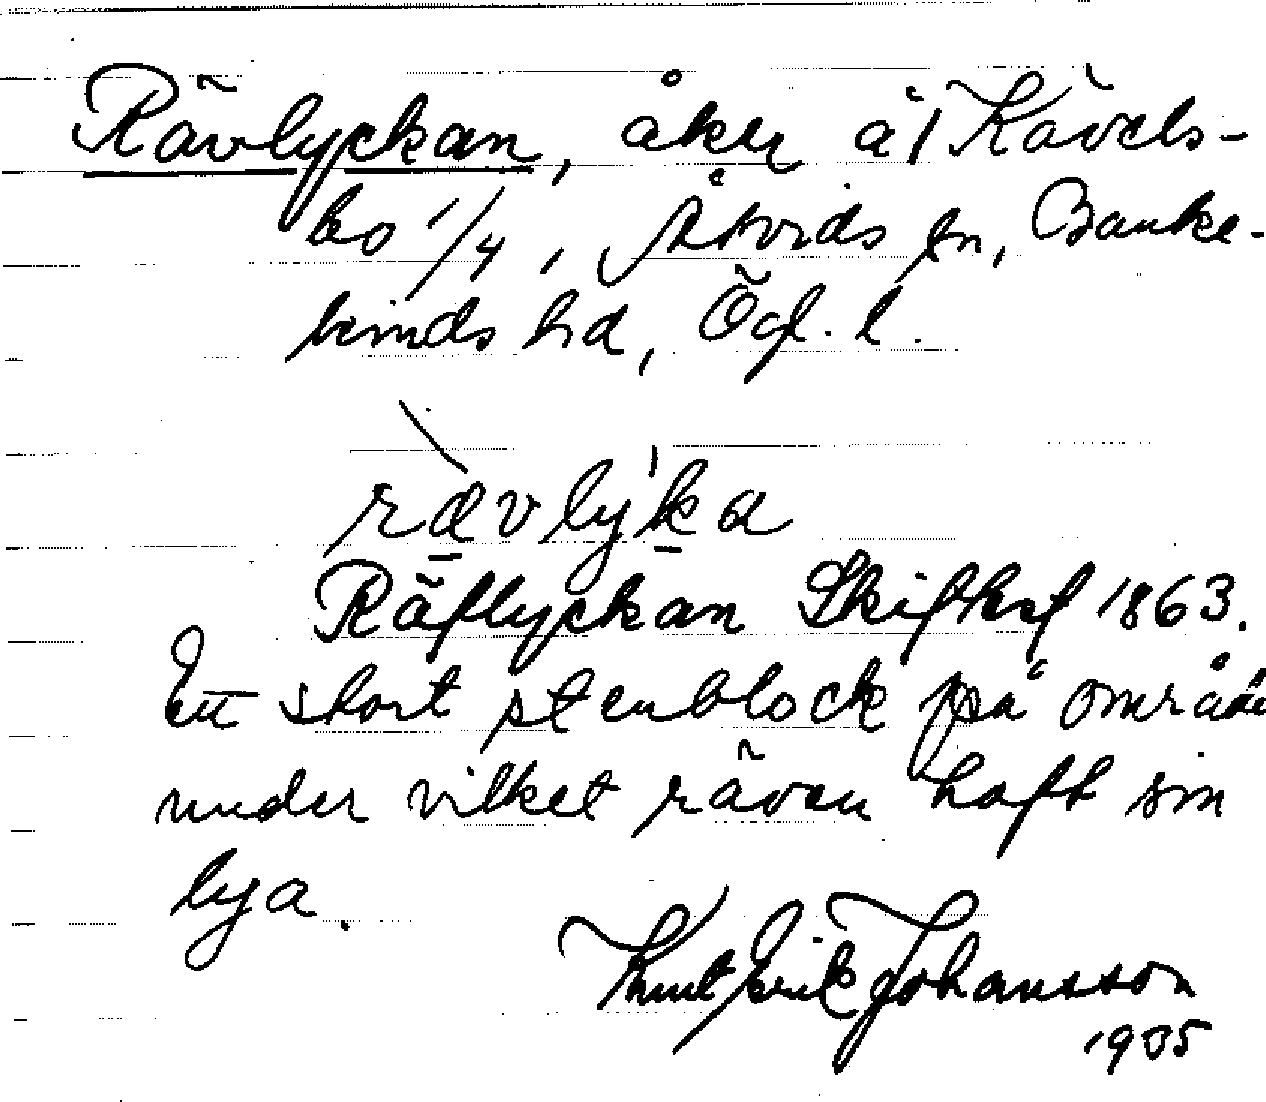 Rävlyckan, åker åt Kävels-
bo 1/4, Åtvids sn, Banke-
kinds hd, Ögl. l.
rävlyka
Räflyckan Skifteskf 1863.
Ett stort stenblock på område
under vilket räven haft sin
lya.
Knut Erik Johansson
1935